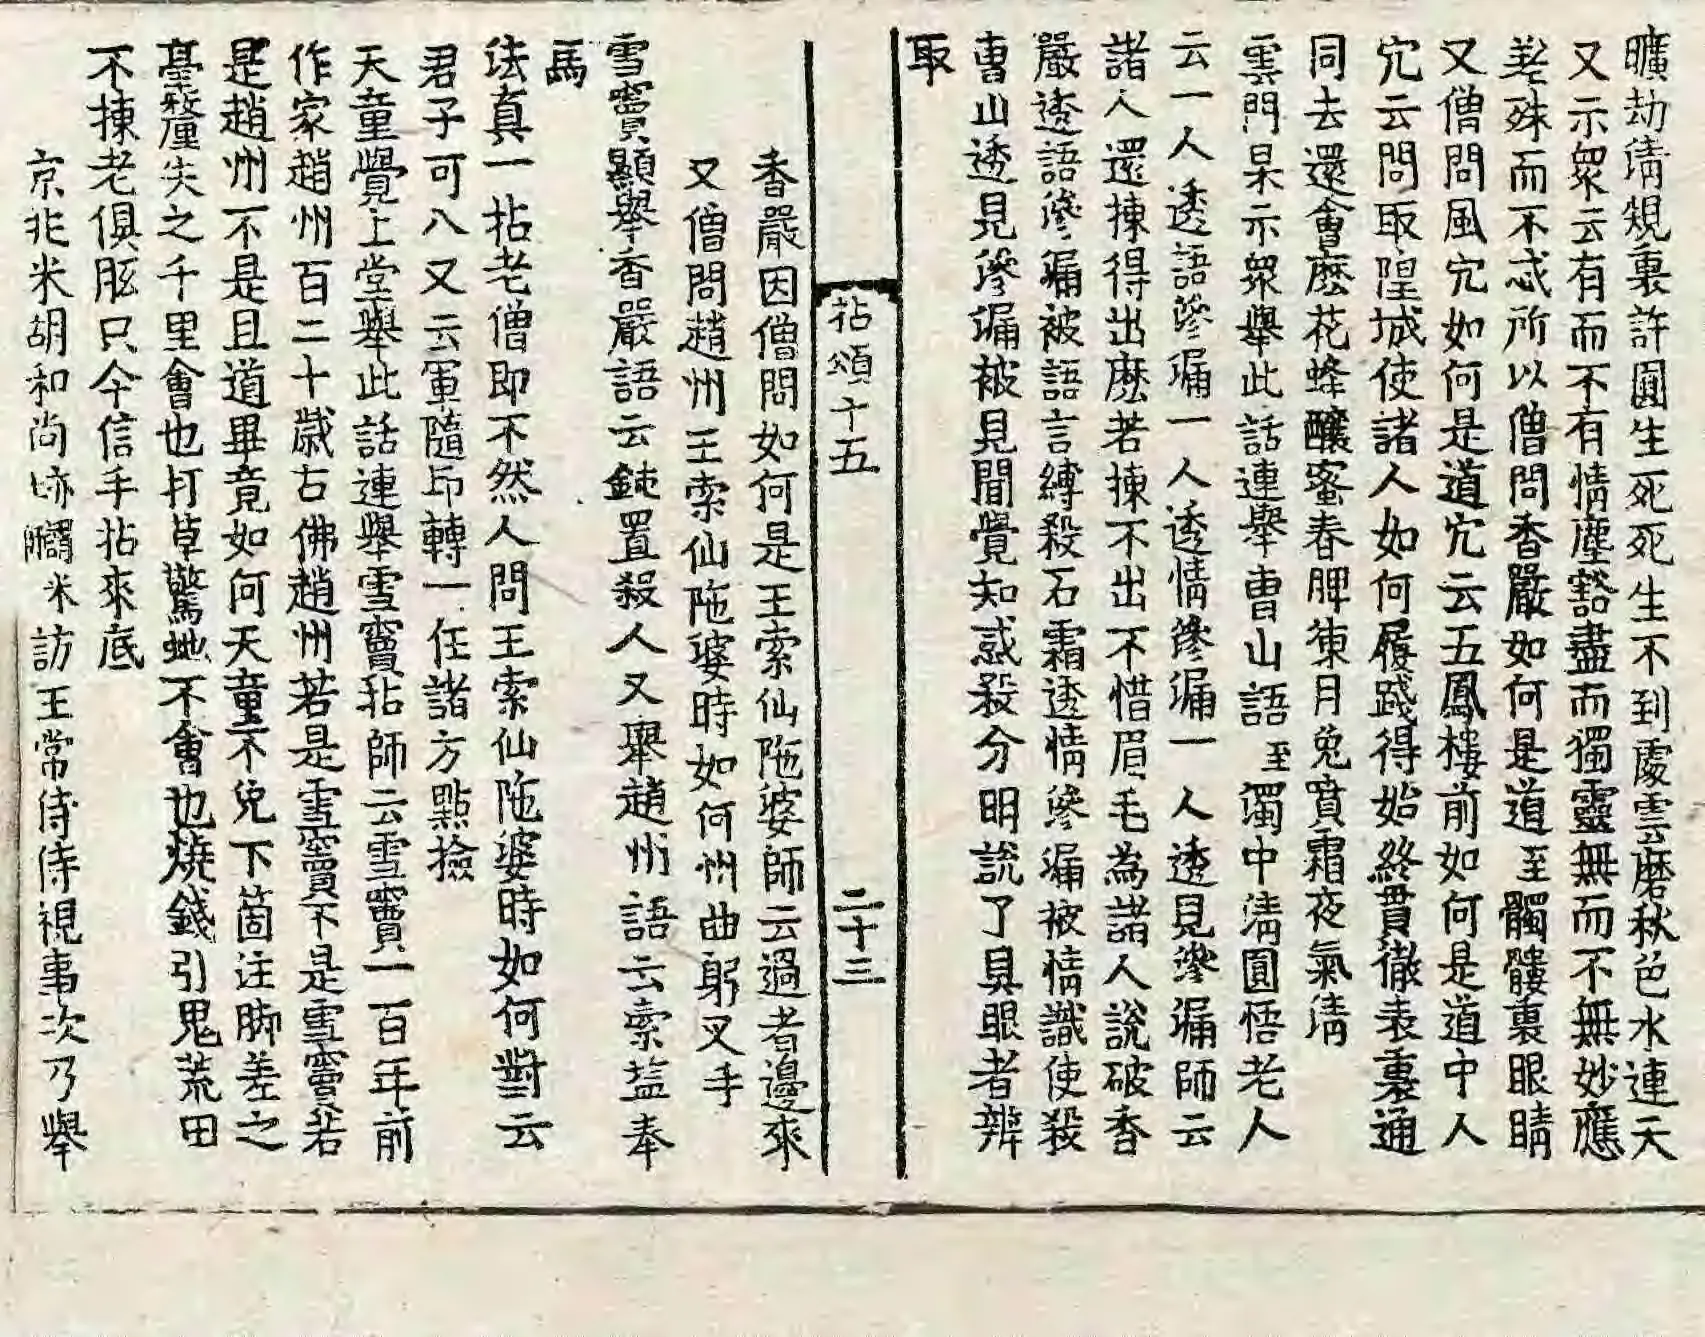 曠劫淸規裏許圓生死死生不到處雲磨秋色水連天
又示衆云有而不有情塵豁盡而獨靈無而不無妙應
差殊而不忒所以僧問香嚴如何是道至髑髏裏眼睛
又僧問風穴如何是道穴云五鳳樓前如何是道中人
穴云問取隍城使諸人如何履踐得始終貫徹表裏通
同去還會麽花蜂釀蜜春脾凍月兔賁霜夜氣淸
雲門杲示衆擧此話連擧曹山語至濁中淸圓悟老人
云一人透語滲漏一人透情滲漏一人透見滲漏師云
諸人還揀得出麽若揀不出不惜眉毛為諸人說破香
嚴透語滲漏被語言縛殺石霜透情滲漏被情識使殺
曹山透見滲漏被見聞覺知惑殺分明說了具眼者辨
取
拈頌十五
二十三
香嚴因僧問如何是王索仙陁婆師云過者邊來
又僧問趙州王索仙陁婆時如何州曲躬叉手
雪竇顯擧香嚴語云鈍置殺人又擧趙州語云索塩奉
馬
法真一拈老僧即不然人問王索仙陁婆時如何對云
君子可八又云軍隨印轉一任諸方點撿
天童覺上堂擧此話連擧雪竇拈師云雪竇一百年前
作家趙州百二十歲古佛趙州若是雪竇不是雪竇若
是趙州不是且道畢竟如何天童不免下箇注脚差之
毫釐失之千里會也打草驚虵不會也燒錢引鬼荒田
不揀老俱胝只今信手拈來底
京兆米胡和尚米訪王常侍侍視事次乃擧